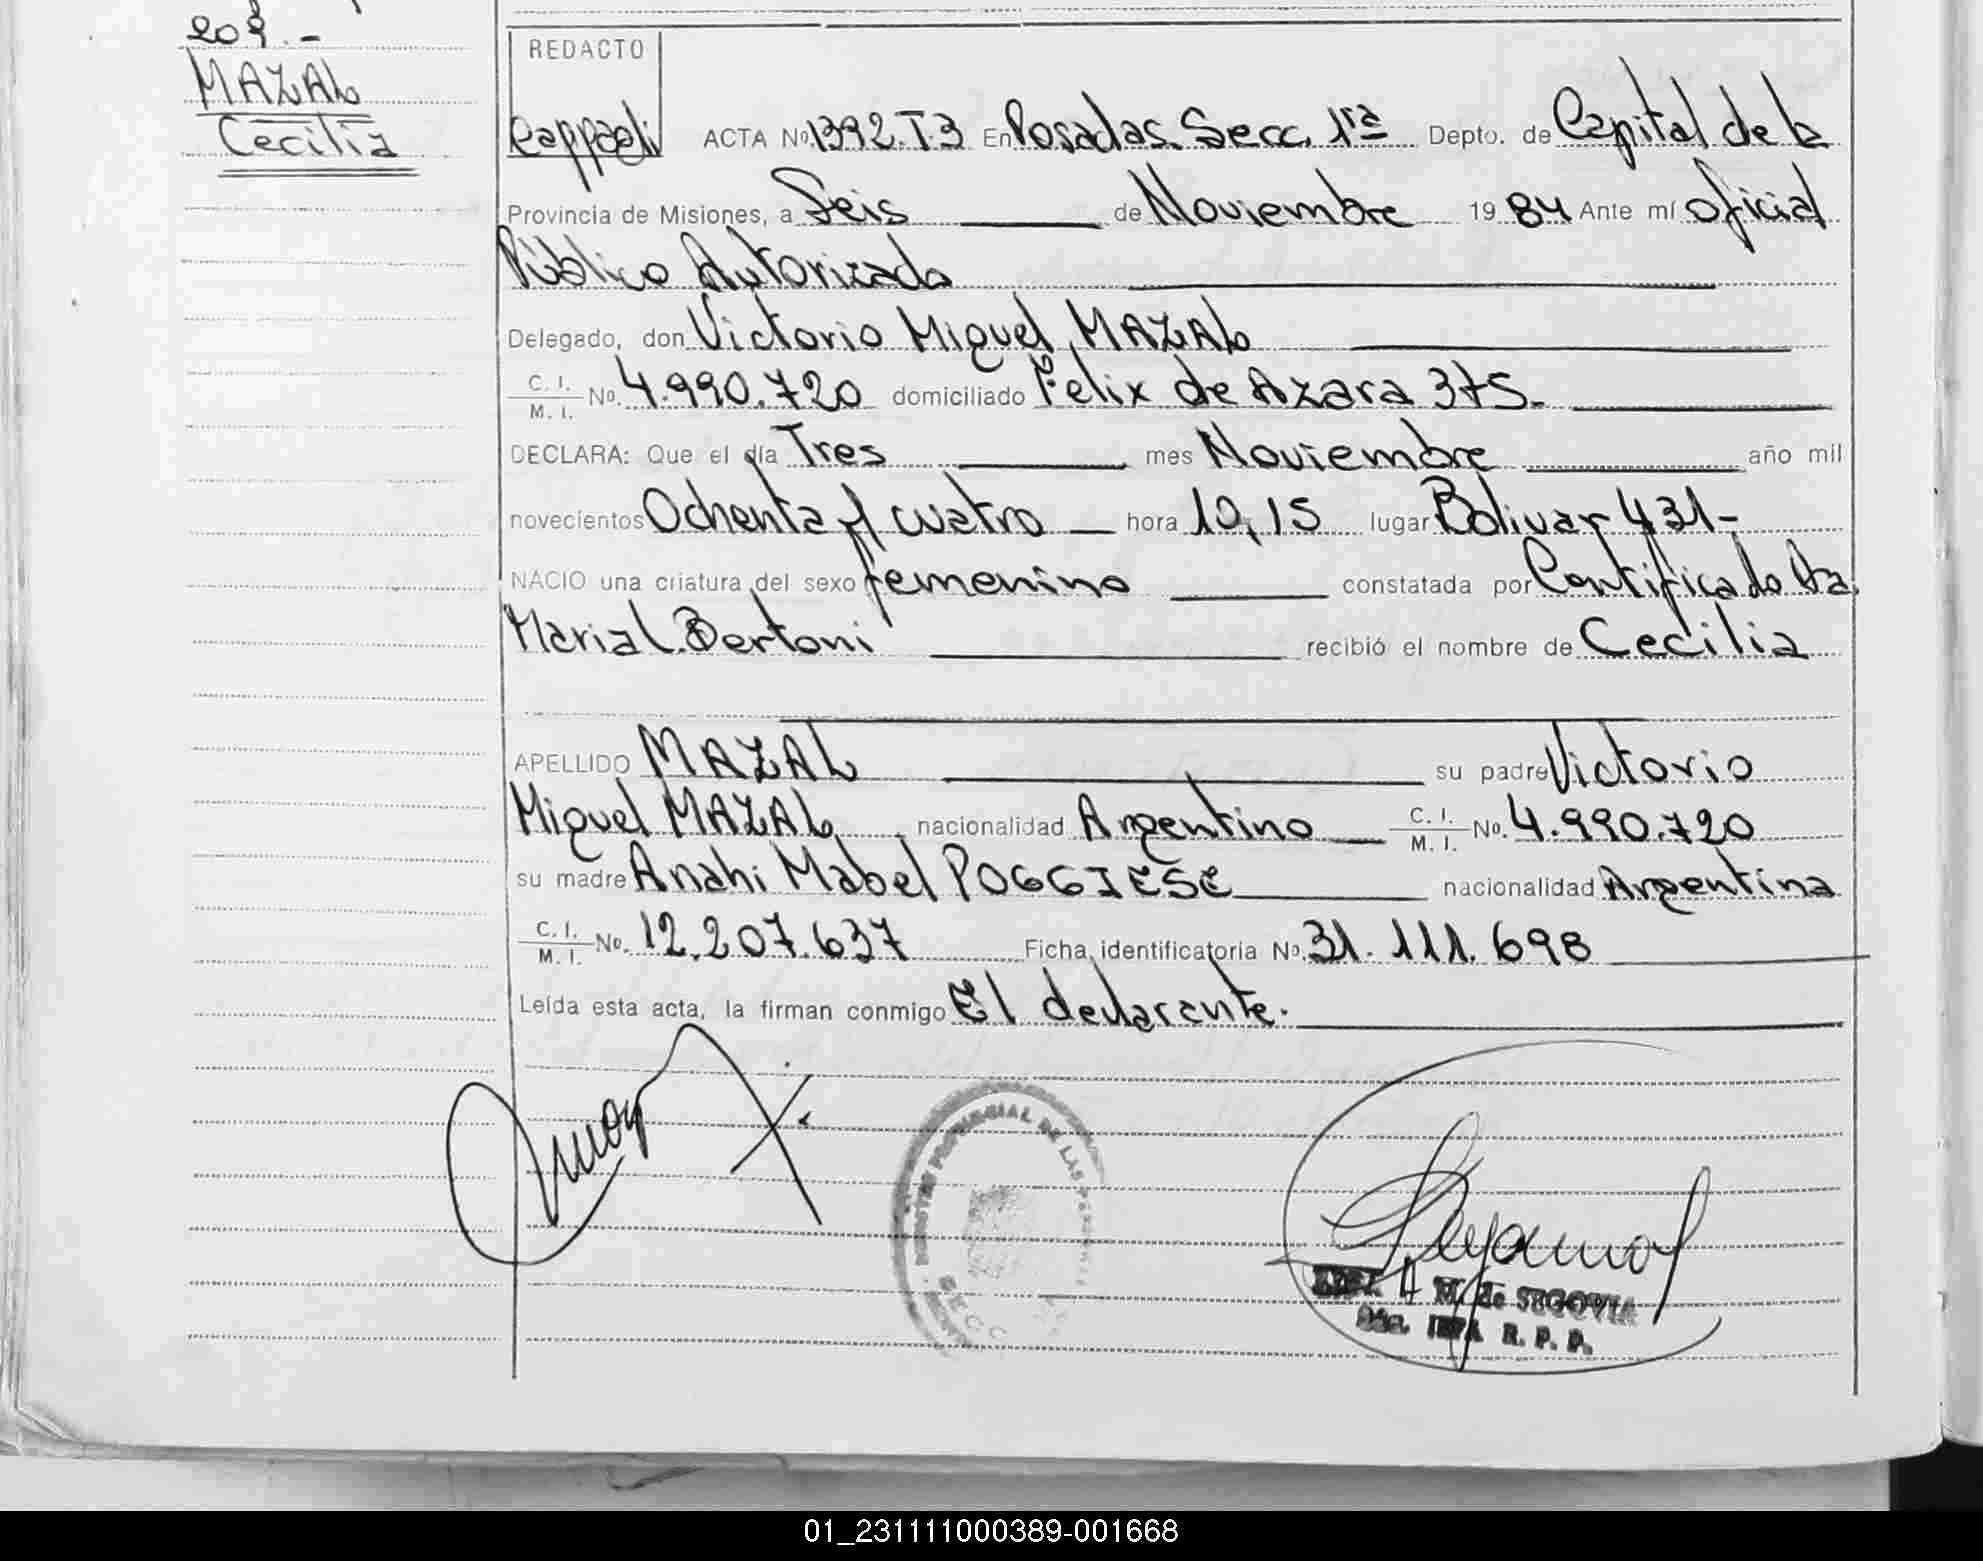 209.-
MAZAL
Cecilia
REDACTO
Cappaeli ACTA Nº 1392.T.3 En Posadas. Secc. 1ra Depto. de Capital de la
Provincia de Misiones, a Seis de Noviembre 19 84 Ante mí Oficial
Público Autorizado
Delegado, don Victorio Miguel MAZAL
C. I. / M. I. No. 4.990.720 domiciliado Felix de Azara 375.-
DECLARA: Que el día Tres mes Noviembre año mil
novecientos Ochenta y cuatro hora 10,15 lugar Bolivar 431-
NACIO una criatura del sexo femenino constatada por Certificado Dra.
Maria L. Bertoni recibió el nombre de Cecilia
APELLIDO MAZAL su padre Victorio
Miguel MAZAL nacionalidad Argentino C. I. / M. I. No. 4.990.720
su madre Anahi Mabel POGGIESE nacionalidad Argentina
C. I. / M. I. No. 12.207.637 Ficha identificatoria No. 31.111.698
Leída esta acta, la firman conmigo El declarante.
REGISTRO PROVINCIAL DE LAS PERSONAS
SECC
A M. de SEGOVIA
R. P. P.
01_231111000389-001668